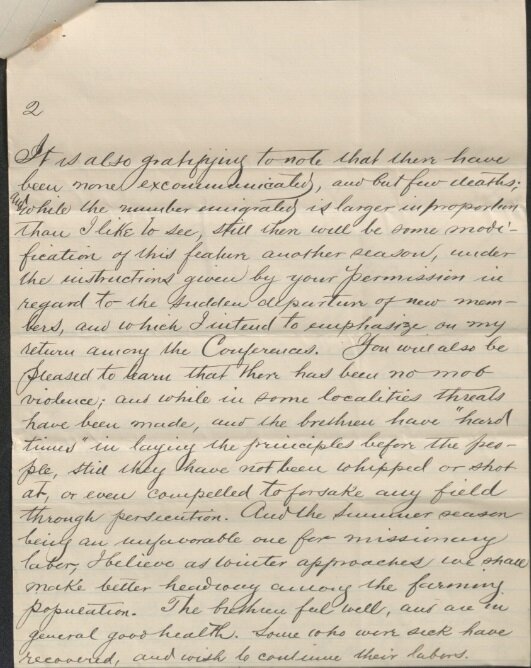 2
It is also gratifying to note that there have
been none excommunicated, and but few deaths;
And while the number emigrated is larger in proportion
than I like to see, still there will be some modi-
fication of this feature another season, under
the instructions given by your permission in
regard to the sudden departure of new mem-
bers, and which I intend to emphasize on my
return among the Conferences. You will also be
pleased to learn that there has been no mob
violence; and while in some localities threats
have been made, and the brethren have "hard
times" in laying the principles before the peo-
ple, still they have not been whipped or shot
at, or even compelled to forsake any field
through persecution. And the summer season
being an unfavorable one for missionary
labor, I believe as winter approaches we shall
make better headway among the farming
population. The brethren feel well, and are in
general good health. Some who were sick have
recovered, and wish to continue their labors.